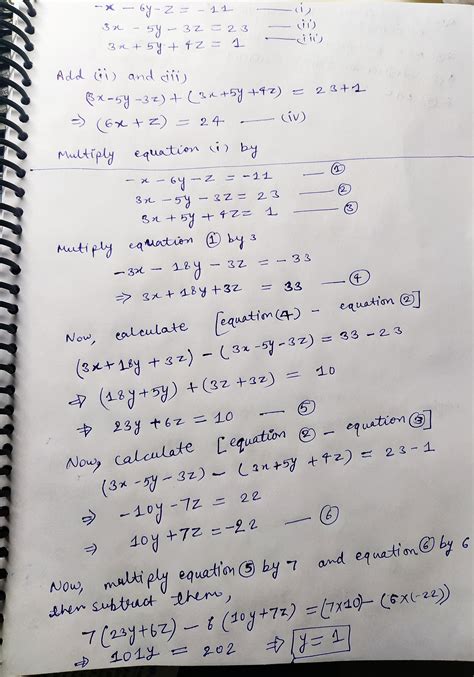 -x - 6y - z = -11 —— (i)
3x - 5y - 3z = 23 —— (ii)
3x + 5y + 4z = 1 —— (iii)
Add (ii) and (iii)
(3x-5y-3z) + (3x+5y+4z) = 23+1
⇒ (6x + z) = 24 —— (iv)
Multiply equation (i) by
-x - 6y - z = -11 —— ①
3x - 5y - 3z = 23 —— ②
3x + 5y + 4z = 1 —— ③
Mutiply equation ① by 3
-3x - 18y - 3z = -33
⇒ 3x + 18y + 3z = 33 —— ④
Now, calculate [equation(4) - equation ②]
(3x + 18y + 3z) - (3x - 5y - 3z) = 33 - 23
⇒ (18y + 5y) + (3z + 3z) = 10
⇒ 23y + 6z = 10 —— ⑤
Now, calculate [equation ② - equation ③]
(3x - 5y - 3z) - (3x + 5y + 4z) = 23 - 1
⇒ -10y - 7z = 22
⇒ 10y + 7z = -22 —— ⑥
Now, multiply equation ⑤ by 7 and equation ⑥ by 6
then subtract them,
7(23y + 6z) - 6(10y + 7z) = (7×10) - (6×(-22))
⇒ 101y = 202 ⇒ y = 1